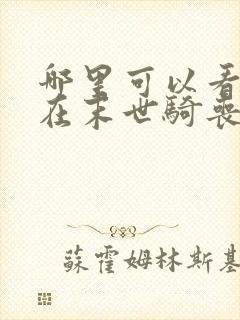 哪里可以看
在末世騎喪
蘇霍姆林斯基